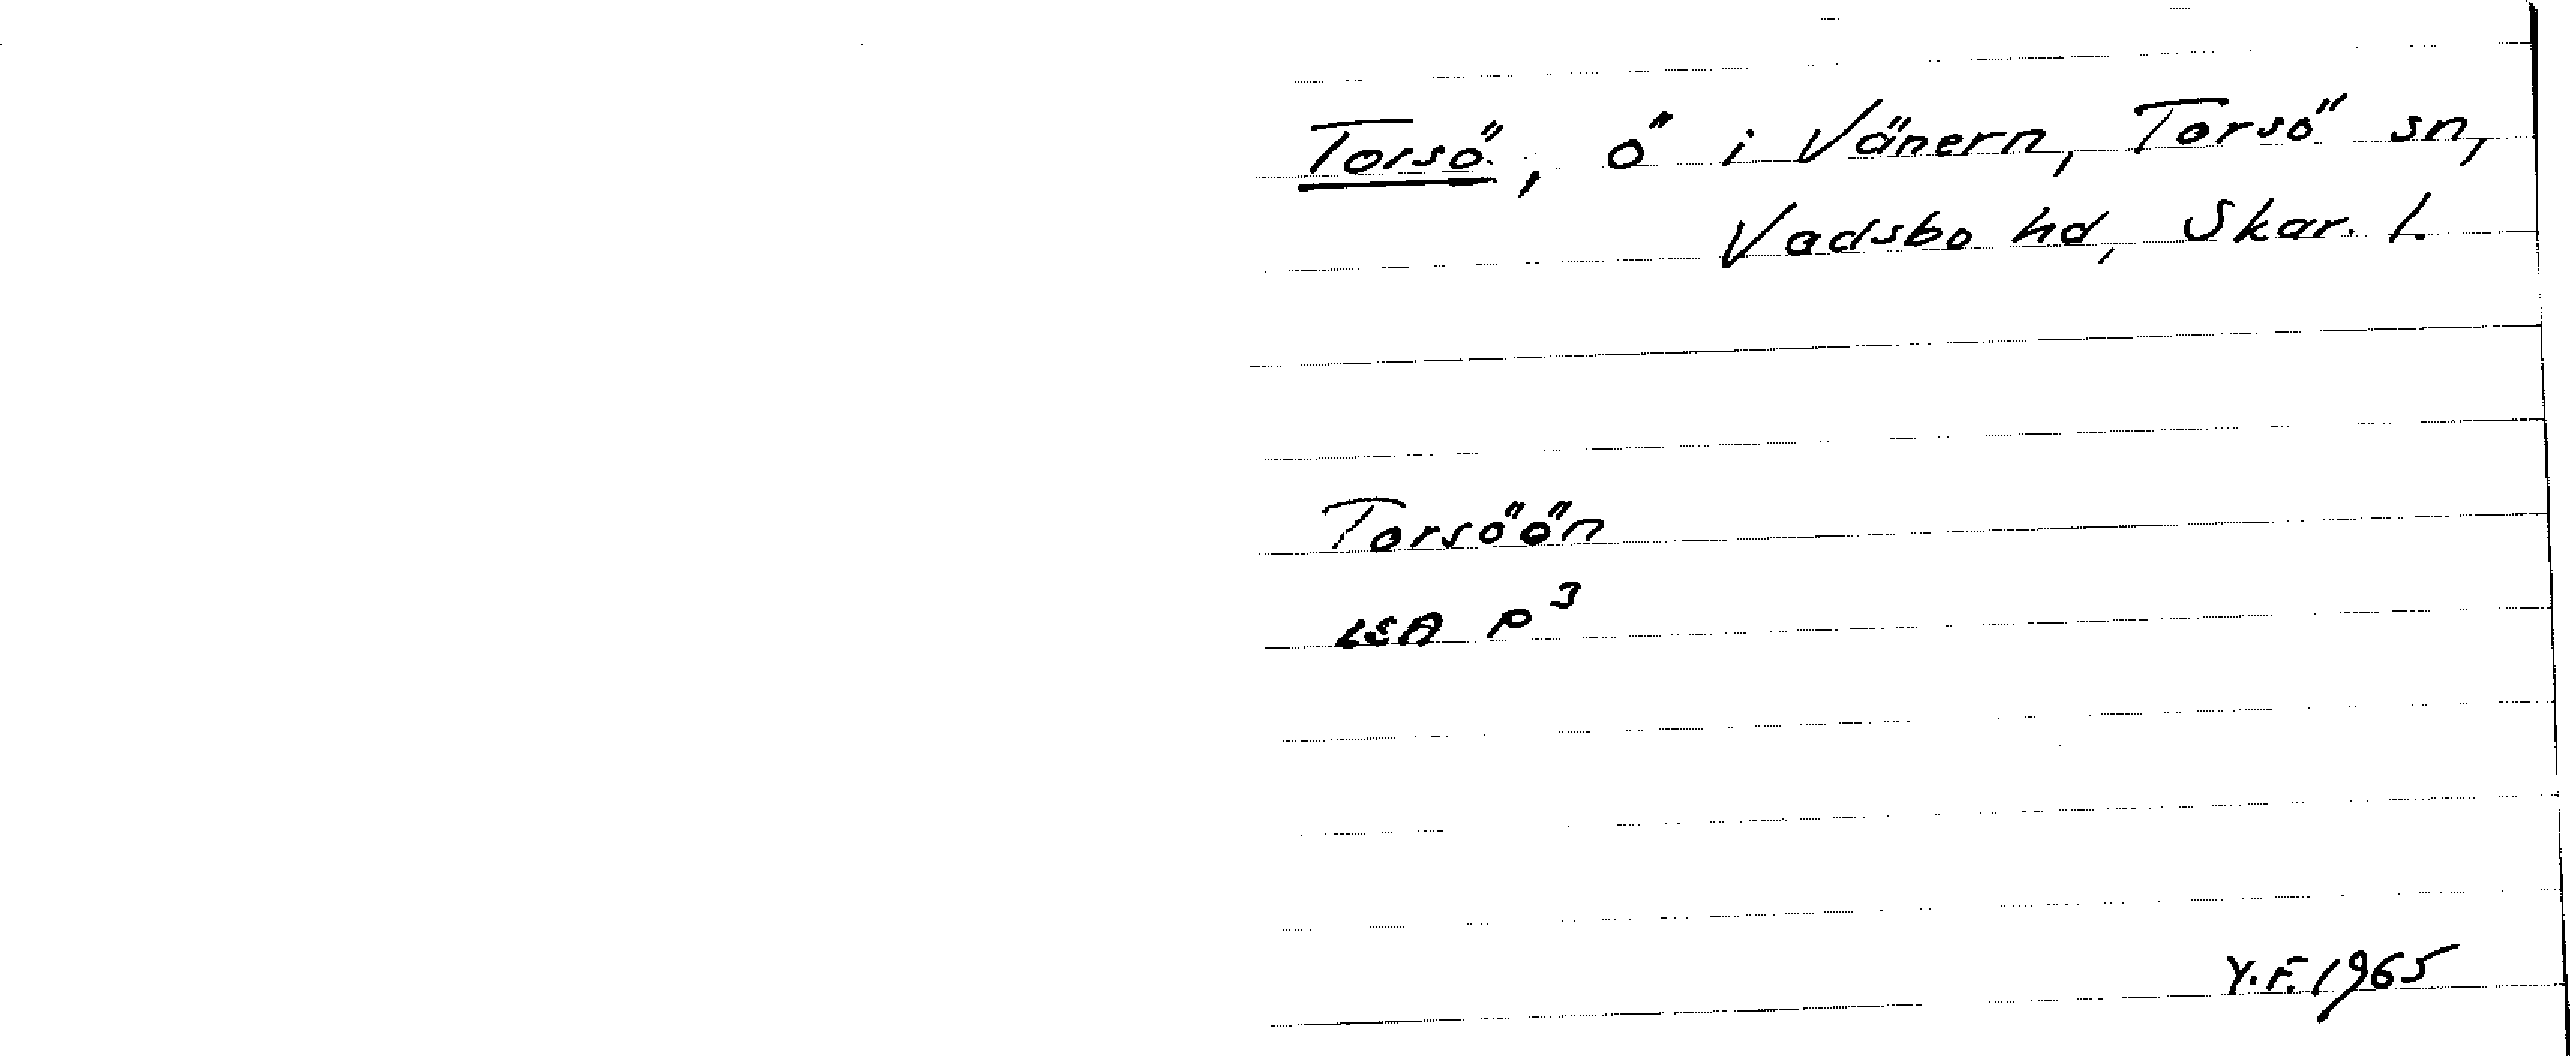 Torsö, ö i Vänern, Torsö sn,
Vadsbo hd, Skar. l.
Torsöön
LSA P³
Y.F. 1965